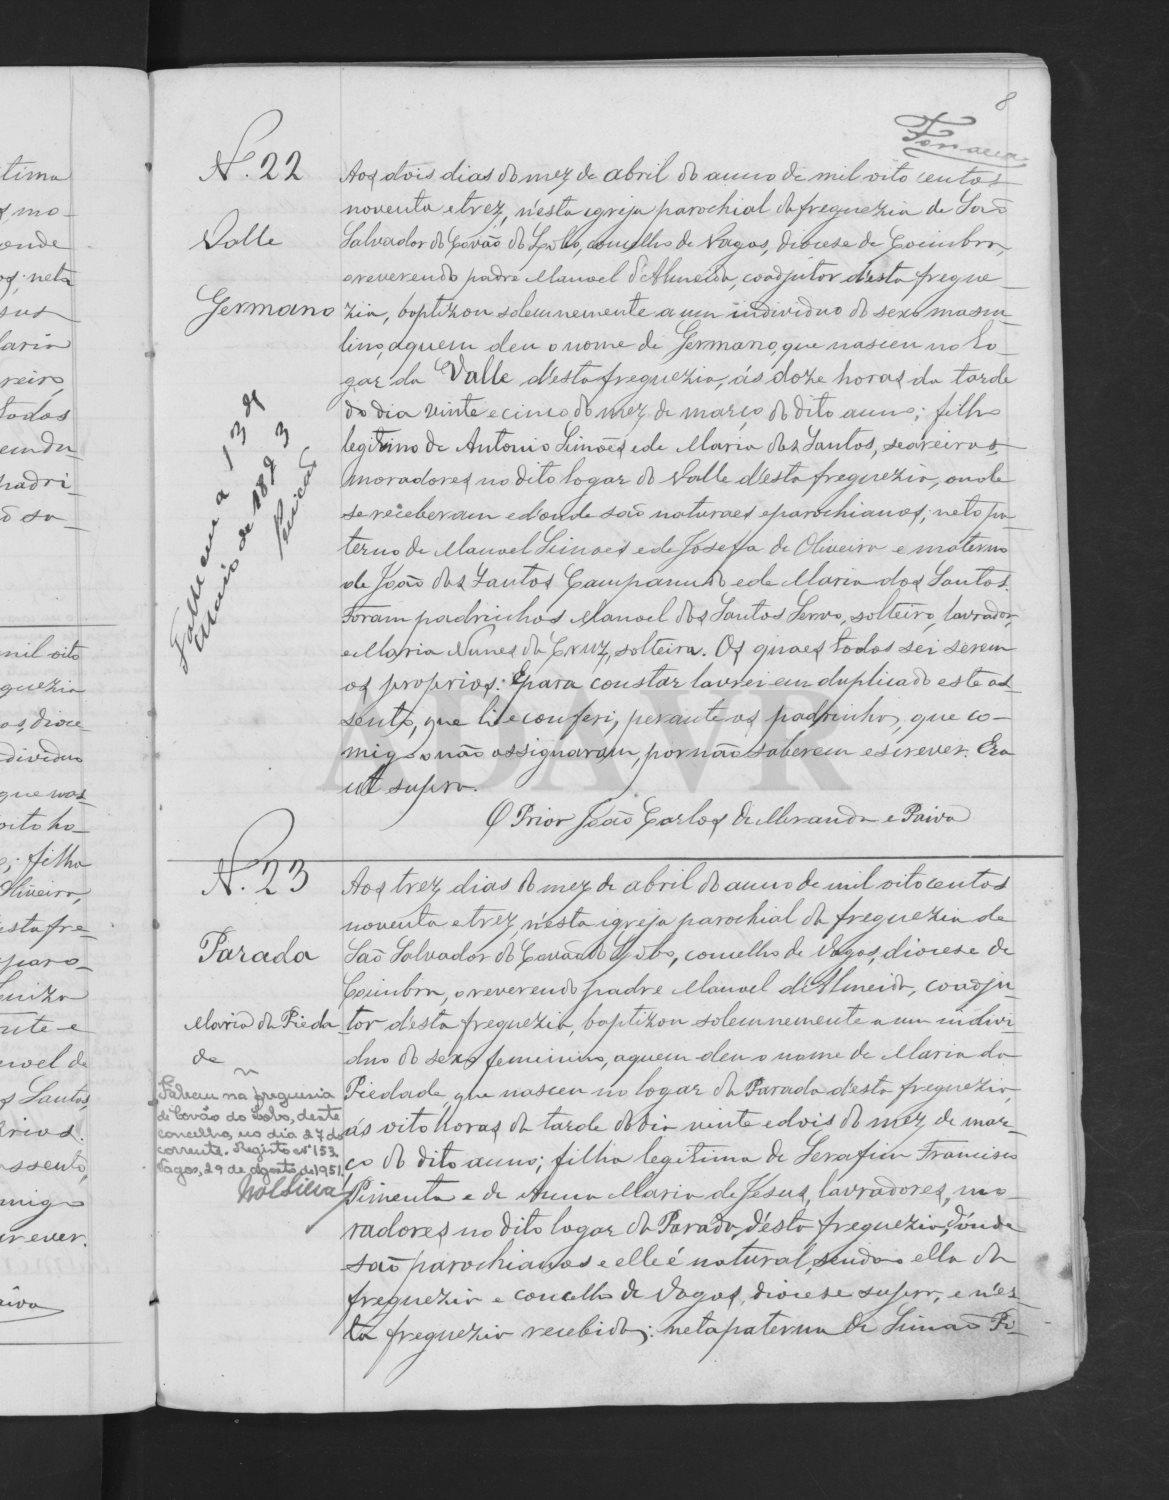 8
Fonseca
N. 22
Valle
Germano
Falleceu a 13 de
Maio de 1893
Aos dois dias do mez de abril do anno de mil oito centos
noventa e trez, n'esta igreja parochial da freguezia de São
Salvador do Covão do Lobo, concelho de Vagos, diocese de Coimbra,
o reverendo padre Manoel d'Almeida, coadjutor d'esta fregue-
zia, baptizou solemnemente a um individuo do sexo mascu-
lino, a quem deu o nome de Germano, que nasceu no lo-
gar do Valle d'esta freguezia, ás doze horas da tarde
do dia vinte e cinco do mez de março do dito anno; filho
legitimo de Antonio Simões e de Maria dos Santos, seareiros,
moradores no dito logar do Valle d'esta freguezia, onde
se receberam e d'onde são naturaes e parochianos; neto pa-
terno de Manoel Simoes e de Josefa de Oliveira e materno
de João dos Santos Campanudo e de Maria dos Santos.
Foram padrinhos Manoel dos Santos Servo, solteiro, lavrador,
e Maria Nunes da Cruz, solteira. Os quaes todos sei serem
os proprios. E para constar lavrei em duplicado este as-
sento, que li e conferi, perante os padrinhos, que co-
migo não assignaram, por não saberem escrever. Era
ut supra.
O Prior João Carlos de Miranda e Paiva
N. 23
Parada
Maria da Pieda-
de
Faleceu na freguesia
de Covão do Lobo, deste
concelho, no dia 27 do
corrente. Registo nº 153.
Vagos, 29 de agosto de 1951.
Aos trez dias do mez de abril do anno de mil oitocentos
noventa e trez, n'esta igreja parochial da freguezia de
São Salvador do Covão do Lobo, concelho de Vagos, diocese de
Coimbra, o reverendo padre Manoel d'Almeida, coadju-
tor d'esta freguezia, baptizou solemnemente a um indivi-
duo do sexo feminino, a quem deu o nome de Maria da
Piedade, que nasceu no logar da Parada d'esta freguezia,
ás oito horas da tarde do dia vinte e dois do mez de mar-
ço do dito anno; filha legitima de Serafim Francisco
Pimenta e de Anna Maria de Jesus, lavradores, mo-
radores no dito logar da Parada, d'esta freguezia, d'onde
são parochianos e elle é natural, sendo ella da
freguezia e concelho de Vagos, diocese supra, e n'es-
ta freguezia recebidos; neta paterna de Simão Pi-
ADAVR